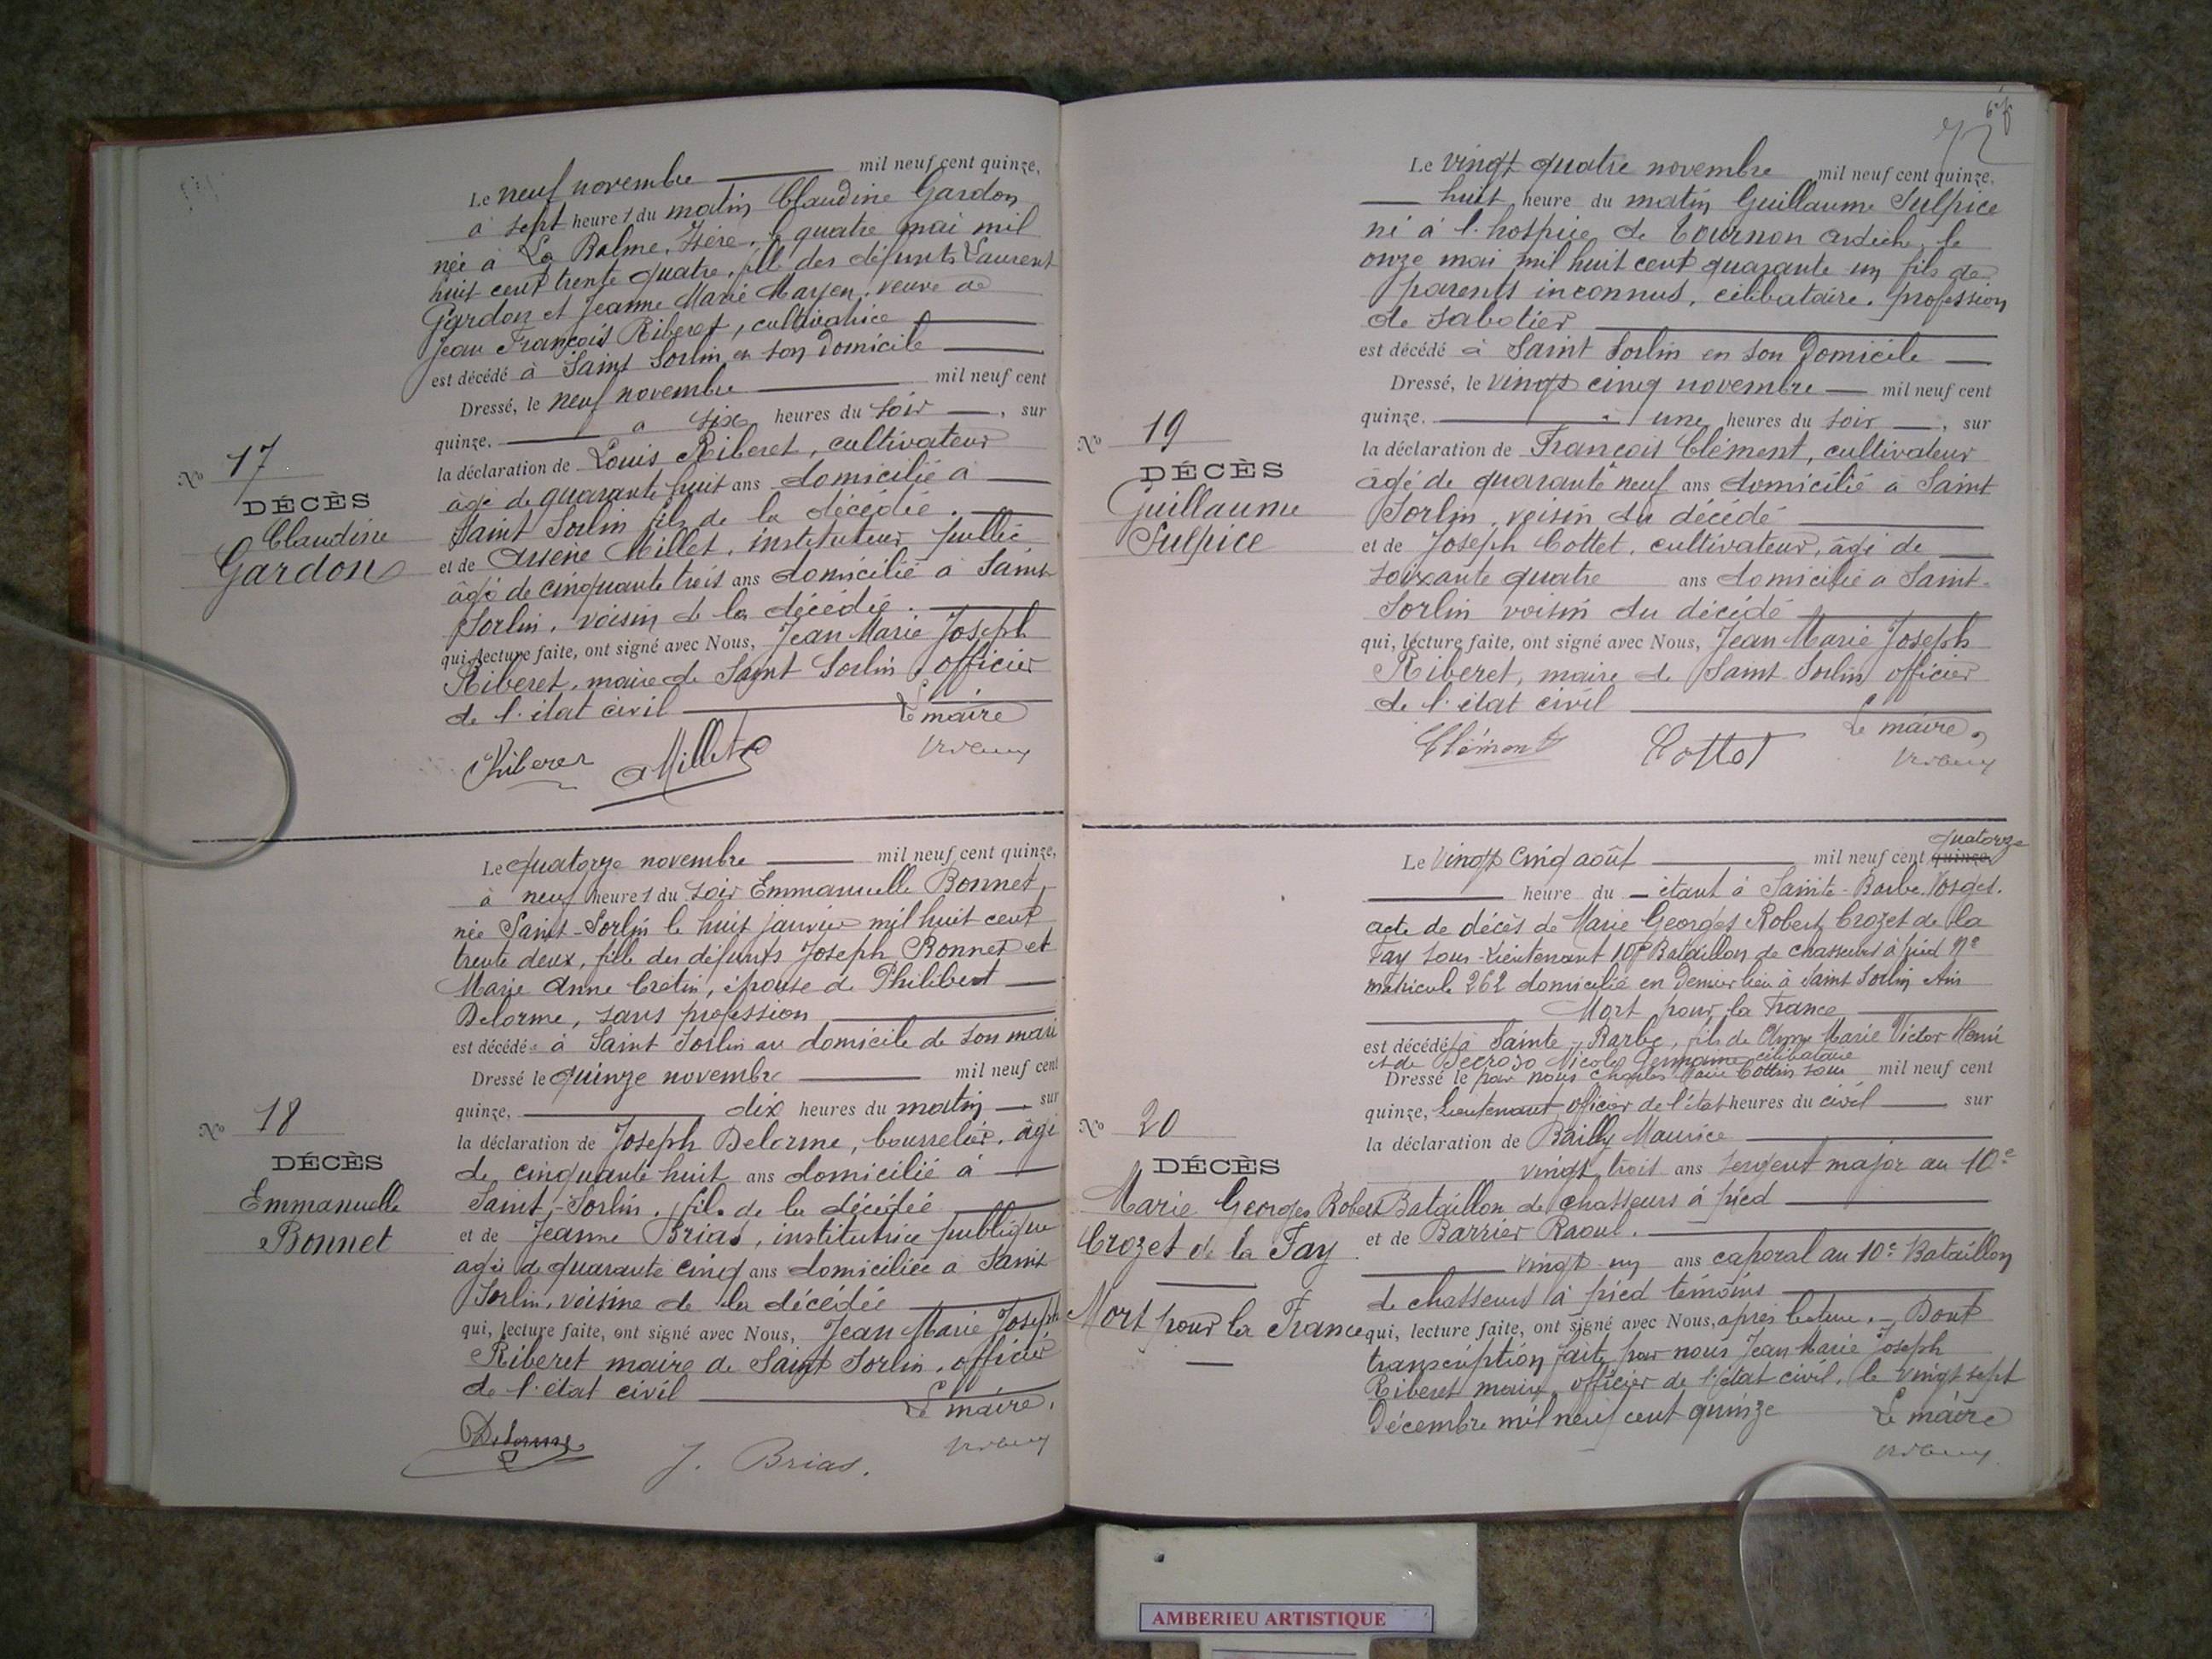 Le neuf novembre mil neuf cent quinze,
à sept heures du matin Claudine Gardon
née à La Balme, Isère, le quatre mai mil
huit cent trente quatre, fille des défunts Laurent
Gardon et Jeanne Marie veuve de
Jean François Riberet, cultivatrice
est décédé à Saint Sorlin en son domicile
Dressé, le neuf novembre mil neuf cent
quinze, à six heures du soir, sur
la déclaration de Louis Riberet, cultivateur
âgé de quarante huit ans domicilié à
Saint Sorlin fils de la décédée.
et de Arsène Millet, instituteur public
âgé de cinquante trois ans domicilié à Saint
Sorlin, voisin de la décédée.
qui, lecture faite, ont signé avec Nous, Jean Marie Joseph
Riberet, maire de Saint Sorlin, officier
de l'état civil
Le maire
Riberet AMillet
No 17
DÉCÈS
Claudine
Gardon
Le quatorze novembre mil neuf cent quinze,
à neuf heures du soir Emmanuelle Bonnet,
née Saint-Sorlin le huit janvier mil huit cent
trente deux, fille des défunts Joseph Bonnet et
Marie Anne Cretin, épouse de Philibert
Delorme, sans profession
est décédée à Saint Sorlin au domicile de son mari
Dressé le quinze novembre mil neuf cent
quinze, dix heures du matin, sur
la déclaration de Joseph Delorme, bourrelier, âgé
de cinquante huit ans domicilié à
Saint-Sorlin, fils de la décédée
et de Jeanne Brias, institutrice publique
agée de quarante cinq ans domiciliée à Saint
Sorlin, voisine de la décédée
qui, lecture faite, ont signé avec Nous, Jean Marie Joseph
Riberet maire de Saint Sorlin, officier
de l'état civil
Le maire,
Delorme J. Brias.
No 18
DÉCÈS
Emmanuelle
Bonnet
Le vingt quatre novembre mil neuf cent quinze,
huit heure du matin Guillaume Sulpice
né à l'hospice de Tournon Ardèche, le
onze mai mil huit cent quarante un fils de
parents inconnus, célibataire, profession
de sabotier
est décédé à Saint Sorlin en son domicile
Dressé, le vingt cinq novembre mil neuf cent
quinze, à une heures du soir, sur
la déclaration de François Clément, cultivateur
âgé de quarante neuf ans domicilié à Saint
Sorlin, voisin du décédé
et de Joseph Cottet, cultivateur, âgé de
soixante quatre ans domicilié à Saint-
Sorlin voisin du décédé
qui, lecture faite, ont signé avec Nous, Jean Marie Joseph
Riberet, maire de Saint-Sorlin officier
de l'état civil
Le maire,
Clément Cottet
No 19
DÉCÈS
Guillaume
Sulpice
quatorze
Le vingt cinq août mil neuf cent quinze,
heure du étant à Sainte-Barbe, Vosges.
acte de décès de Marie Georges Robert Crozet de la
Fay sous-lieutenant 10e Bataillon de chasseurs à pied No
matricule 262 domicilié en dernier lieu à Saint Sorlin Ain
Mort pour la France
est décédé à Sainte-Barbe, fils de Marie Victor Henri
et de Nicole Germaine célibataire
Dressé le par nous Charles Marie Cottin sous mil neuf cent
quinze, lieutenant, officier de l'état heures du civil sur
la déclaration de Bailly Maurice
vingt trois ans sergent major au 10e
Bataillon de chasseurs à pied
et de Barrier Raoul.
vingt-un ans caporal au 10e Bataillon
de chasseurs à pied témoins
qui, lecture faite, ont signé avec Nous, après lecture. Dont
transcription faite par nous Jean Marie Joseph
Riberet maire, officier de l'état civil, le vingt sept
Décembre mil neuf cent quinze Le maire
No 20
DÉCÈS
Marie Georges Robert
Crozet de la Fay
Mort pour la France
AMBERIEU ARTISTIQUE